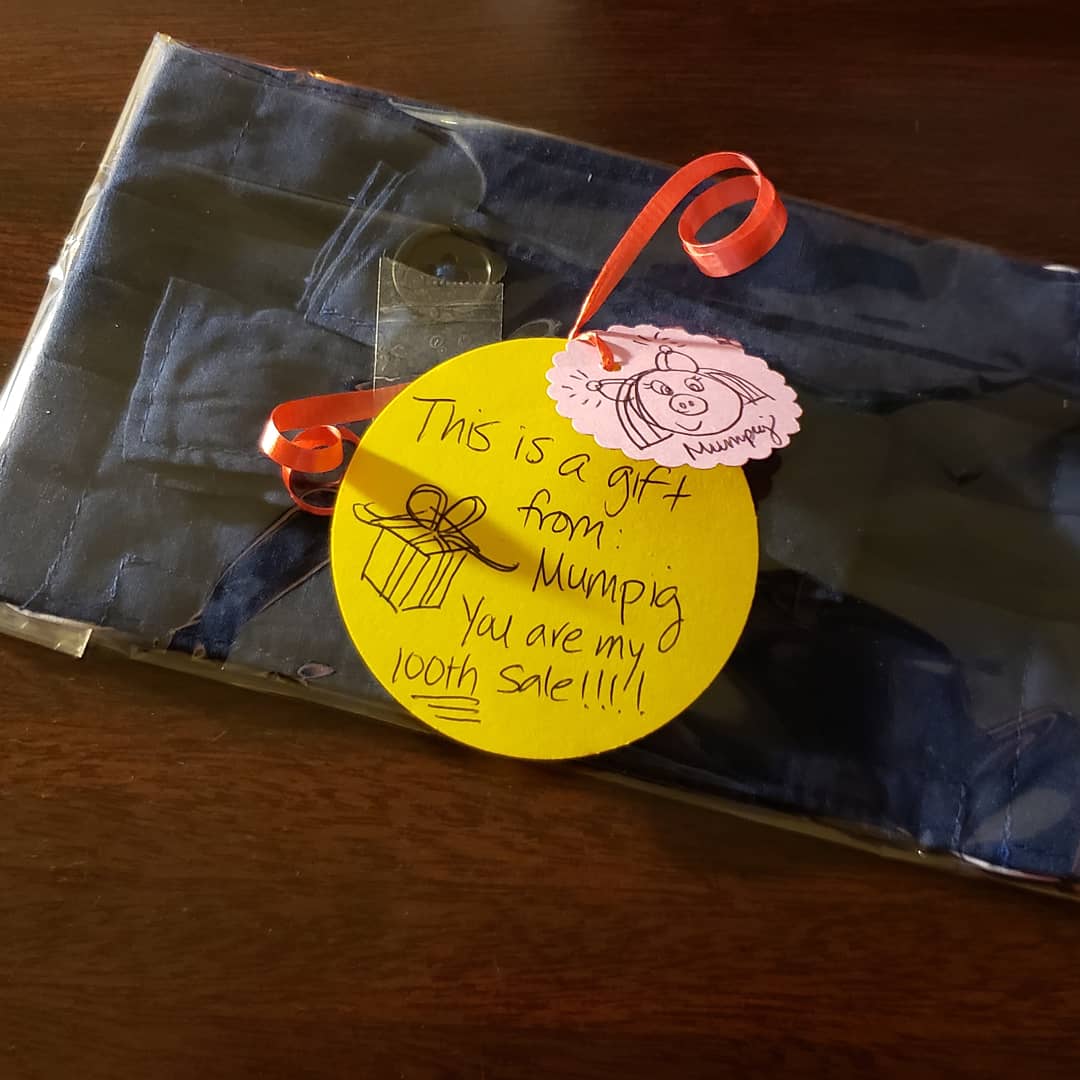 Mumpig
This is a gift
from:
Mumpig
You are my
100th Sale!!!!